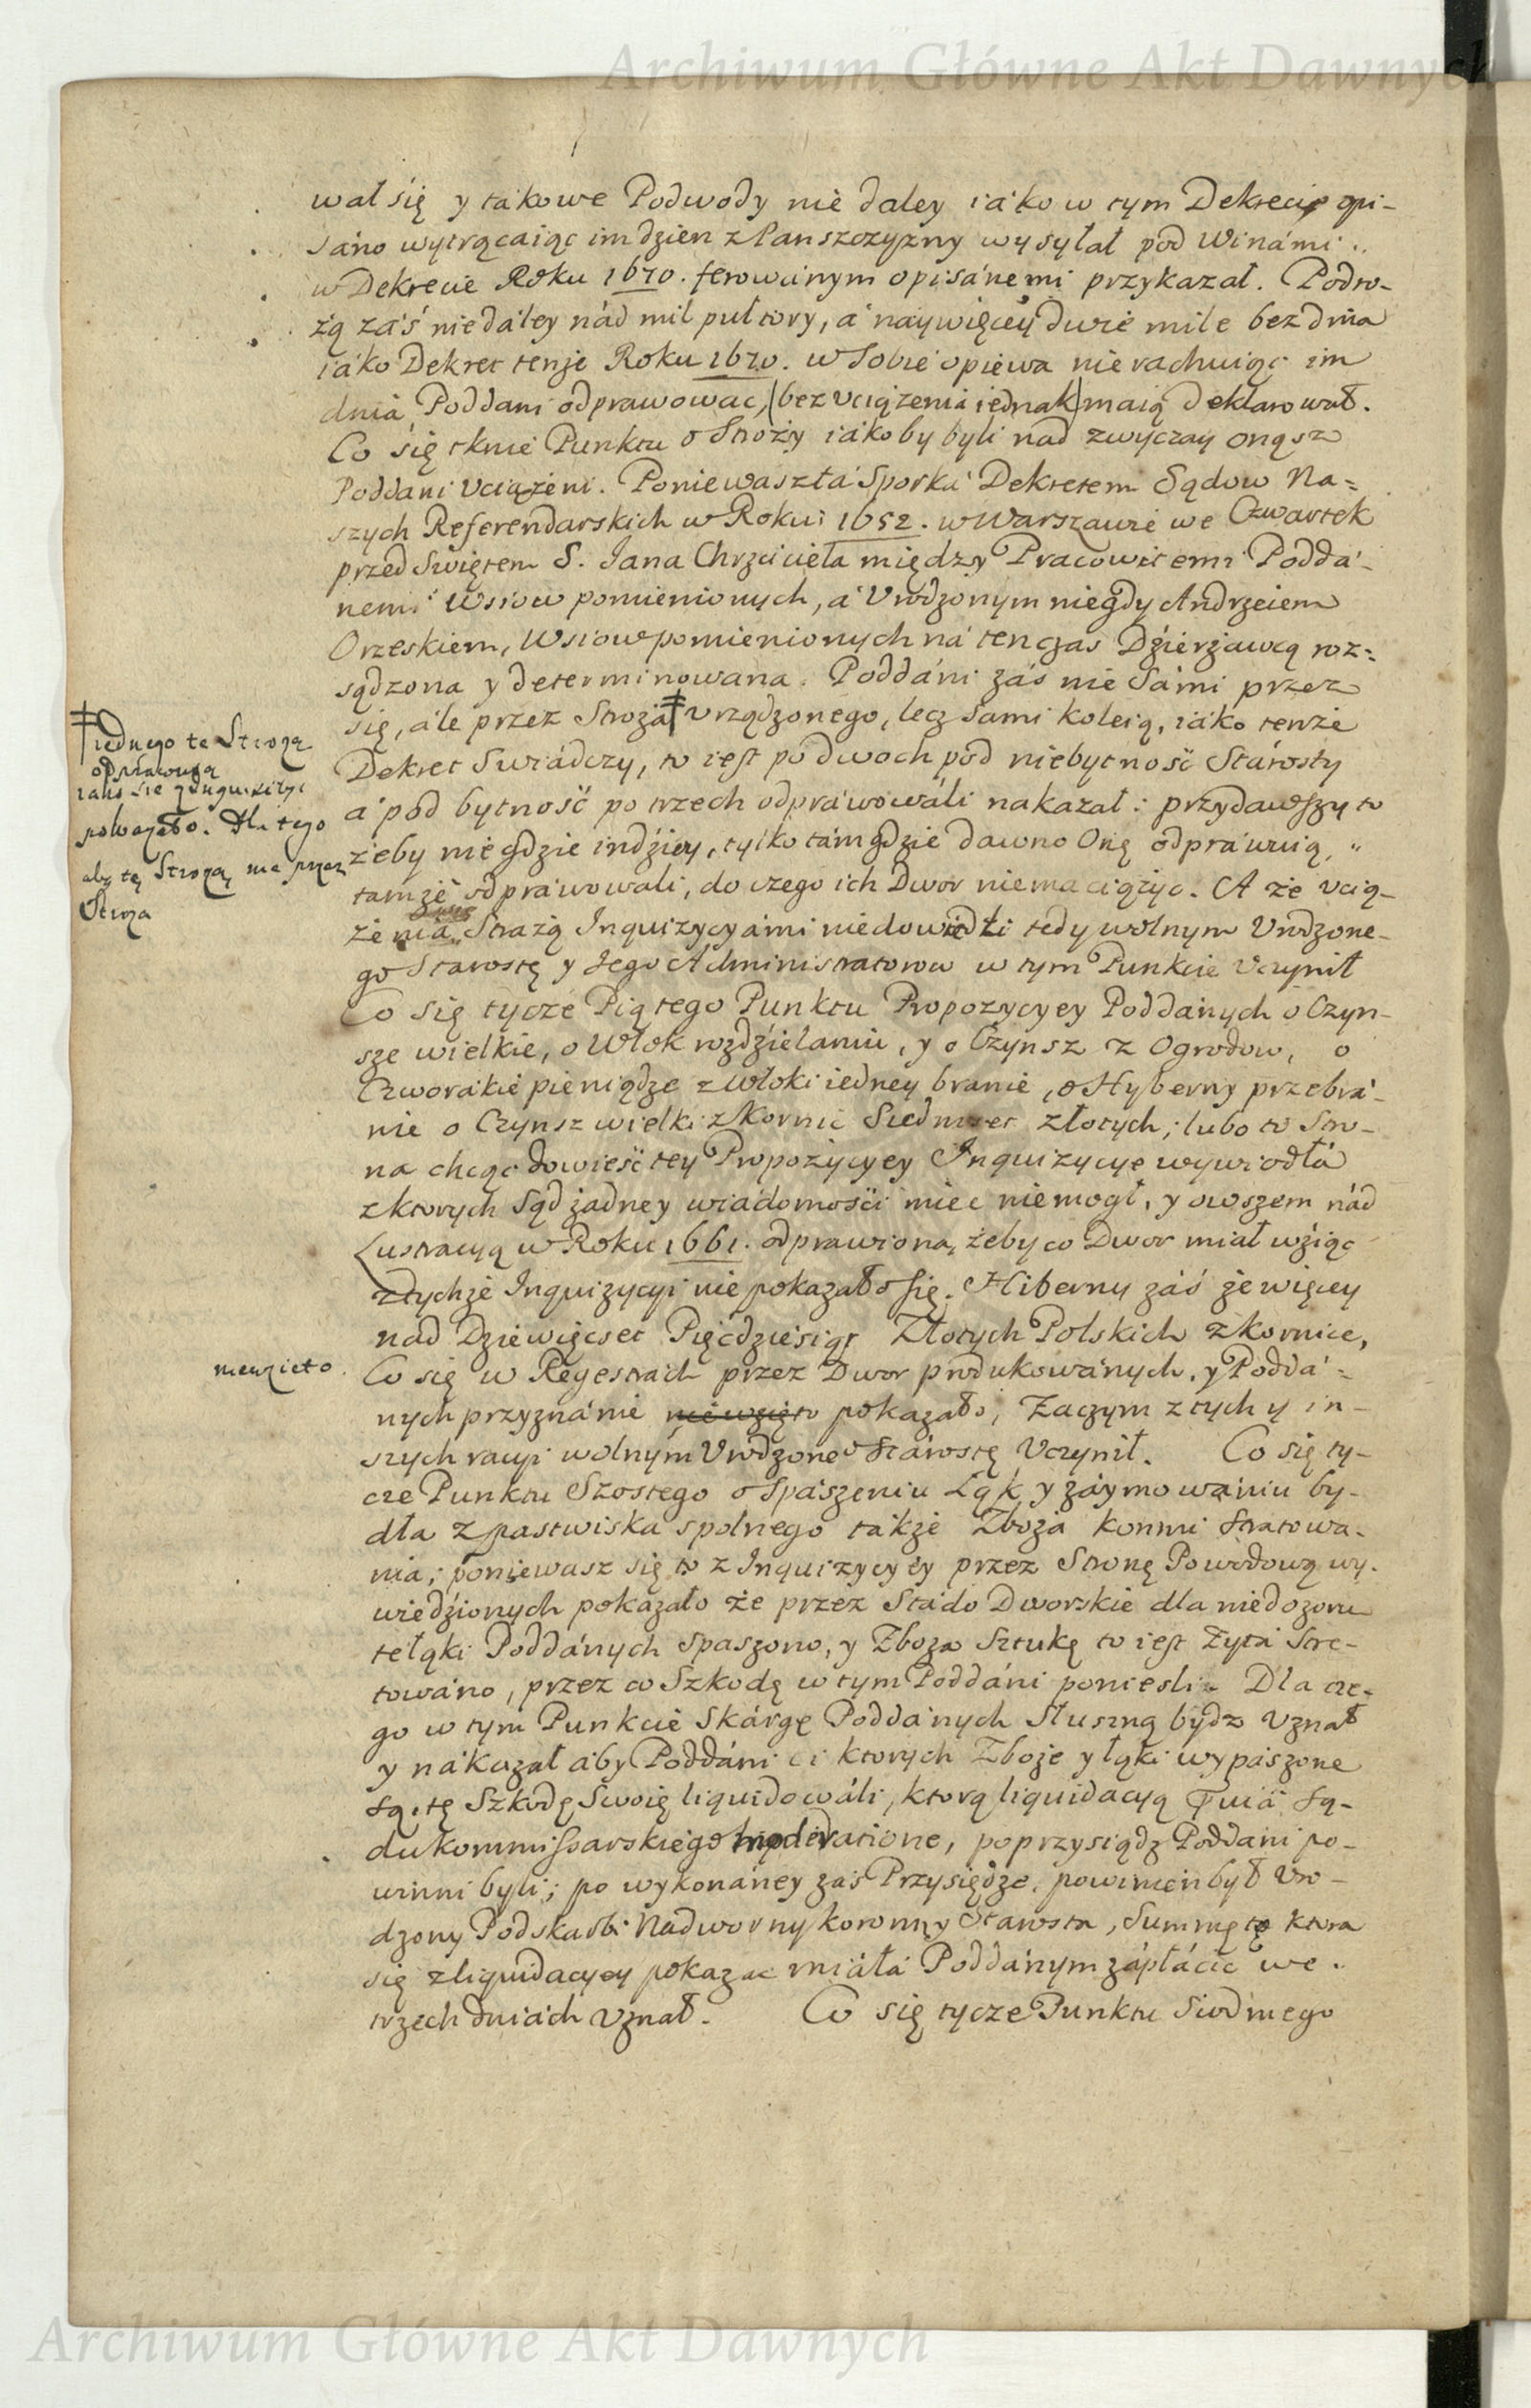 Archiwum Główne Akt Dawnych
wał się y takowe Podwody nie daley iako w tym Dekrecie opi-
sano wytrącaiąc im dzien z Panszczyzny wysyłał pod Winámi
w Dekrecie Roku 1670. ferowánym opisánemi przykazał. Podro-
żą záś niedáley nád mil pułtory, á naywięcey dwie mile bez dnia
iáko Dekret tenże Roku 1670. w Sobie opiewa nie rachuiąc im
dniá Poddani odprawowac, (bez vciążenia iednak) maią deklarował.
Co się tknie Punktu o Stroży iákoby byli nad zwyczay onąsz
Poddani Vciążeni. Poniewasz tá Sporká Dekretem Sądow Na=
szych Referendarskich w Roku 1652. w Warszawie we Czwartek
przed Swiętem S. Jana Chrzciciela między Pracowitemi Poddá-
nemi Wsiow pomienionych, á Vrodzonym niegdy Andrzeiem
Orzeskiem, Wsiow pomienionych ná tenczas Dzierżawcą roz=
sądzona y determinowana. Poddáni záś nie Sámi przez
się, ále przez Stroża ǂ vrządzonego, lecz sami koleią, iáko tenże
Dekret Swiádczy, to iest po dwoch pod niebytność Stárosty
á pod bytność po trzech odpráwowáli nakazał: przydawszy to
żeby niegdzie indziey, tylko tám gdzie dawno Onę odpráwuią,
tamże odpráwowali, do czego ich Dwor niema ciążyc. A że vcią-
żenia Strażą Inquizycyámi niedowiedli tedy wolnym Vrodzone-
go Starostę y Jego Administratorow w tym Punkcie Vczynił
Co się tycze Piątego Punktu Propozycyey Poddánych o Czyn-
sze wielkie, o Włok rozdzielaniu, y o Czynsz z Ogrodow, o
Czworákie pieniądze z włoki iedney branie, o Hyberny przebrá-
nie o Czynsz wielki z Kornic Siedmset złotych; lubo to Stro-
na chcąc dowieść tey Propozycyey Inquizycye wywiodłá
z ktorych Sąd żadney wiádomości miec niemogł, y owszem nád
Lustracyą w Roku 1661. odprawioną, żeby co Dwor miał wziąc
z tychże Inquizycyi nie pokazało się. Hiberny záś że więcey
nad Dziewięcset Pięcdziesiąt Złotych Polskich z Kornice,
Co się w Regestrách przez Dwor produkowánych, y Poddá=
nych przyznánie niewzięto pokazało, Zaczym z tych y in-
szych racyi wolnym Vrodzonego Stárostę Vczynił. Co się ty-
cze Punktu Szostego o Spászeniu Łąk y záymowániu by-
dła z pastwiska spolnego tákże Zboża konmi stratowa-
nia; poniewasz się to z Inquizycyey przez Stronę Powodową wy-
wiedzionych pokazáło że przez Stádo Dworskie dla niedozoru
te łąki Poddánych Spaszono, y Zboża Sztukę to iest Żytá Stre-
towáno, przez co Szkodę w tym Poddáni poniesli. Dla cze-
go w tym Punkcie Skárgę Poddánych Słuszną bydz Vznał
y nákazał áby Poddáni ci ktorych Zboże y łąki wypászone
są, tę Szkodę Swoię liquidowáli, ktorą liquidacyą są-
du kommissarskiego moderatione, poprzysiądz Poddáni po-
winni byli; po wykonáney záś Przysiędze, powinien był Vro-
dzony Podskarbi Nadworny koronny Starosta, Summę tę ktora
się z liquidacyey pokazac miáłá Poddánym zápłácic we
trzech dniách Vznał. Co się tycze Punktu Siodmego
ǂ iednego tę Strożą
odprawuią
iako się z Inquizitiy
pokazało. Dla tego
aby tę Strożą nie przez
Stroża
niewzieto.
Archiwum Główne Akt Dawnych